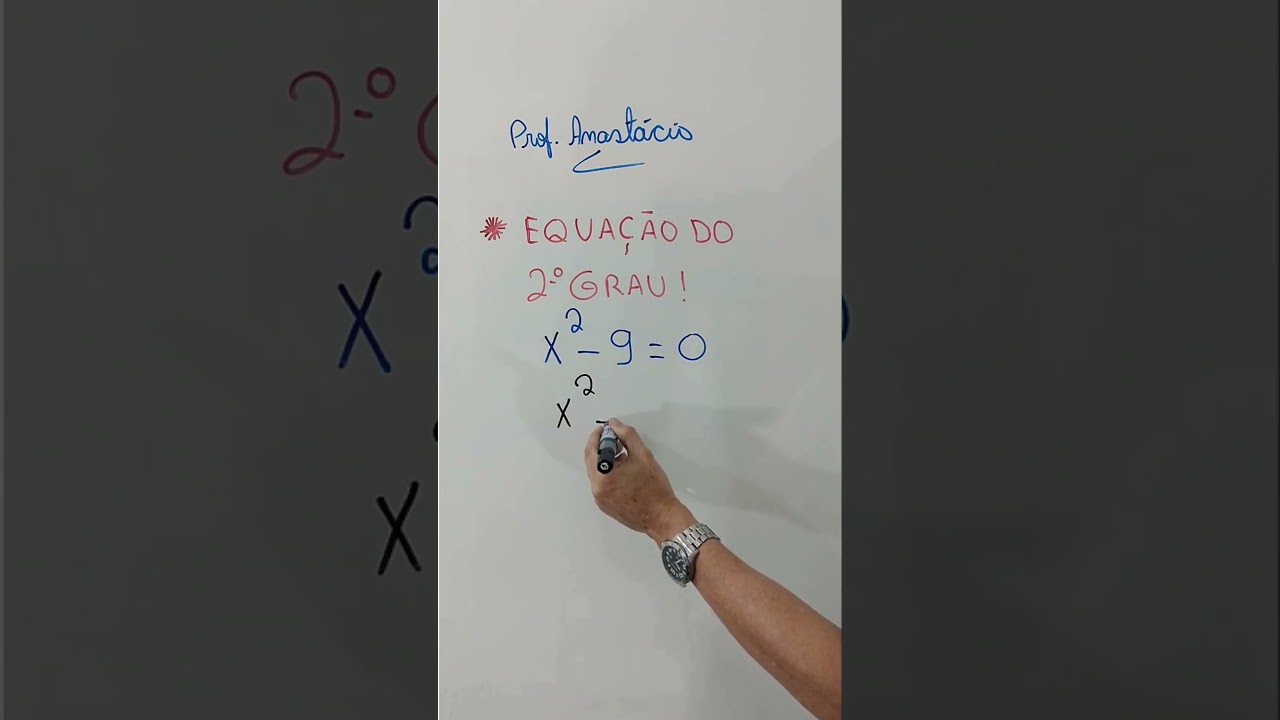 Prof. Anastácio
* EQUAÇÃO DO
2.º GRAU!
x² - 9 = 0
x² -